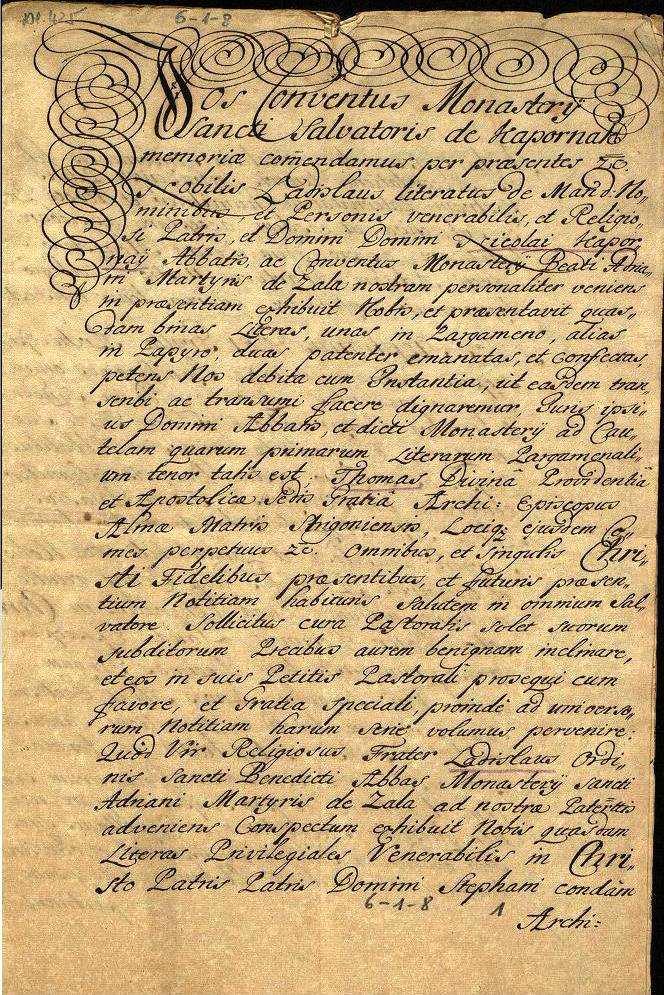 6-1-8
Nos Conventus Monastery
Sancti Salvatoris de Kapornak
memoriæ com̄endamus per præsentes &c.
Nobilis Ladislaus literatus de Mand. No-
minibus, et Personis venerabilis, et Religio-
si Patris, et Domini Domini Nicolai Kapor-
nay Abbatis, ac Conventus Monastery Beati Adria-
ni Martyris de Zala nostram personaliter veniens
in præsentiam exhibuit Nobis, et præsentavit quas-
dam binas Literas, unas in Pargameno, alias
in Papyro, duas patenter emanatas, et confectas,
petens Nos debita cum Instantia, ut easdem tran-
scribi ac transumi facere dignaremur, Juris ipsi-
us Domini Abbatis, et dicti Monastery ad Cau-
telam quarum primarum Literarum Pargamenali-
um tenor talis est. Thomas Divina Providentia
et Apostolicæ Sedis Gratia Archi: Episcopus
Almæ Matris Strigoniensis, Lociq; ejusdem Co-
mes perpetuus &c. Omnibus, et singulis Chri-
sti Fidelibus præsentibus, et futuris præsen-
tium Notitiam habituris Salutem in omnium Sal-
vatore. Sollicitus cura Pastoralis solet suorum
subditorum Precibus aurem benignam inclinare,
et eos in suis Petitis Pastorali prosequi cum
favore, et Gratia speciali, proinde ad universo-
rum Notitiam harum serie volumus pervenire.
Quod Vir Religiosus Frater Ladislaus Ordi-
nis Sancti Benedicti Abbas Monastery Sancti
Adriani Martyris de Zala ad nostræ Paterñtis
adveniens Conspectum exhibuit Nobis quasdam
Literas Privilegiales Venerabilis in Chri-
sto Patris Patris Domini Stephani condam
6-1-8 1
Archi: